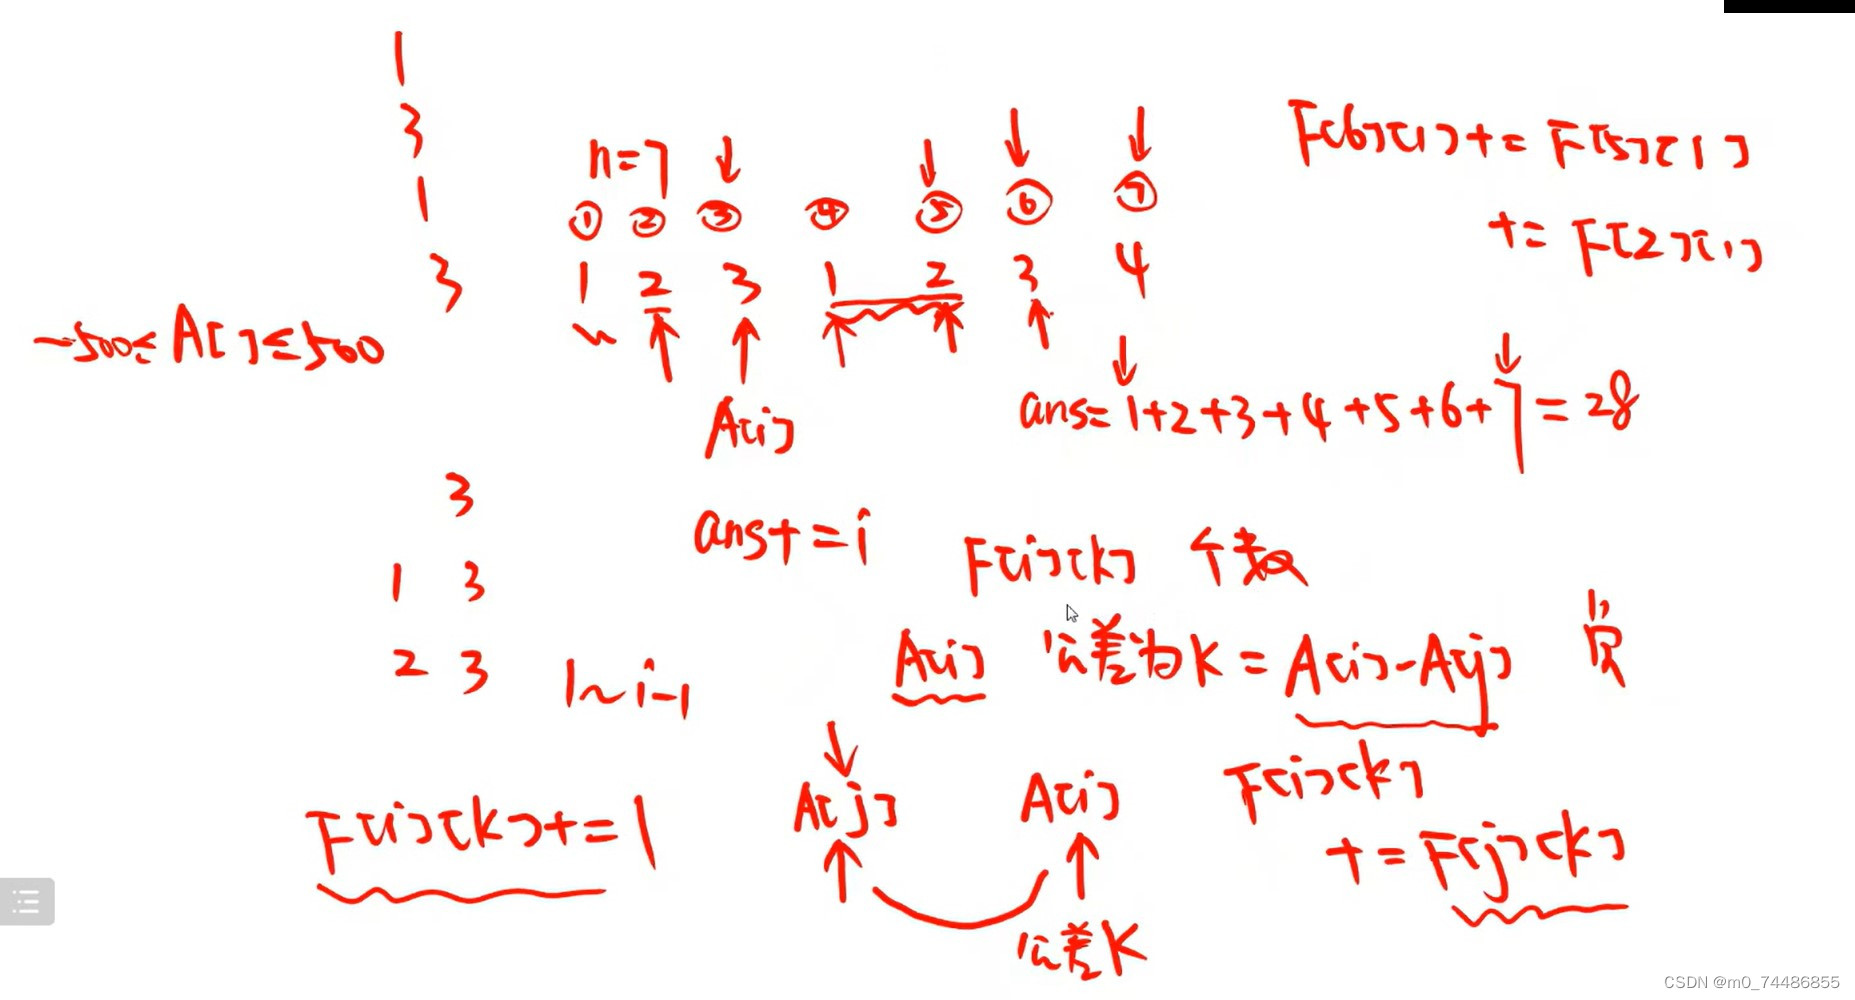 1
3
1
3
n=7
① ② ③ ④ ⑤ ⑥ ⑦
1 2 3 1 2 3 4
F[6][1] += F[5][1]
+= F[2][1]
-500≤A[]≤500
A[i]
ans=1+2+3+4+5+6+7=28
3
1 3
2 3
ans+=i
F[i][k] 个数
1~i-1
A[i] 公差为K=A[i]-A[j]
F[i][k]+=1
A[j] A[i]
公差K
F[i][k]
+=F[j][k]
CSDN @m0_74486855